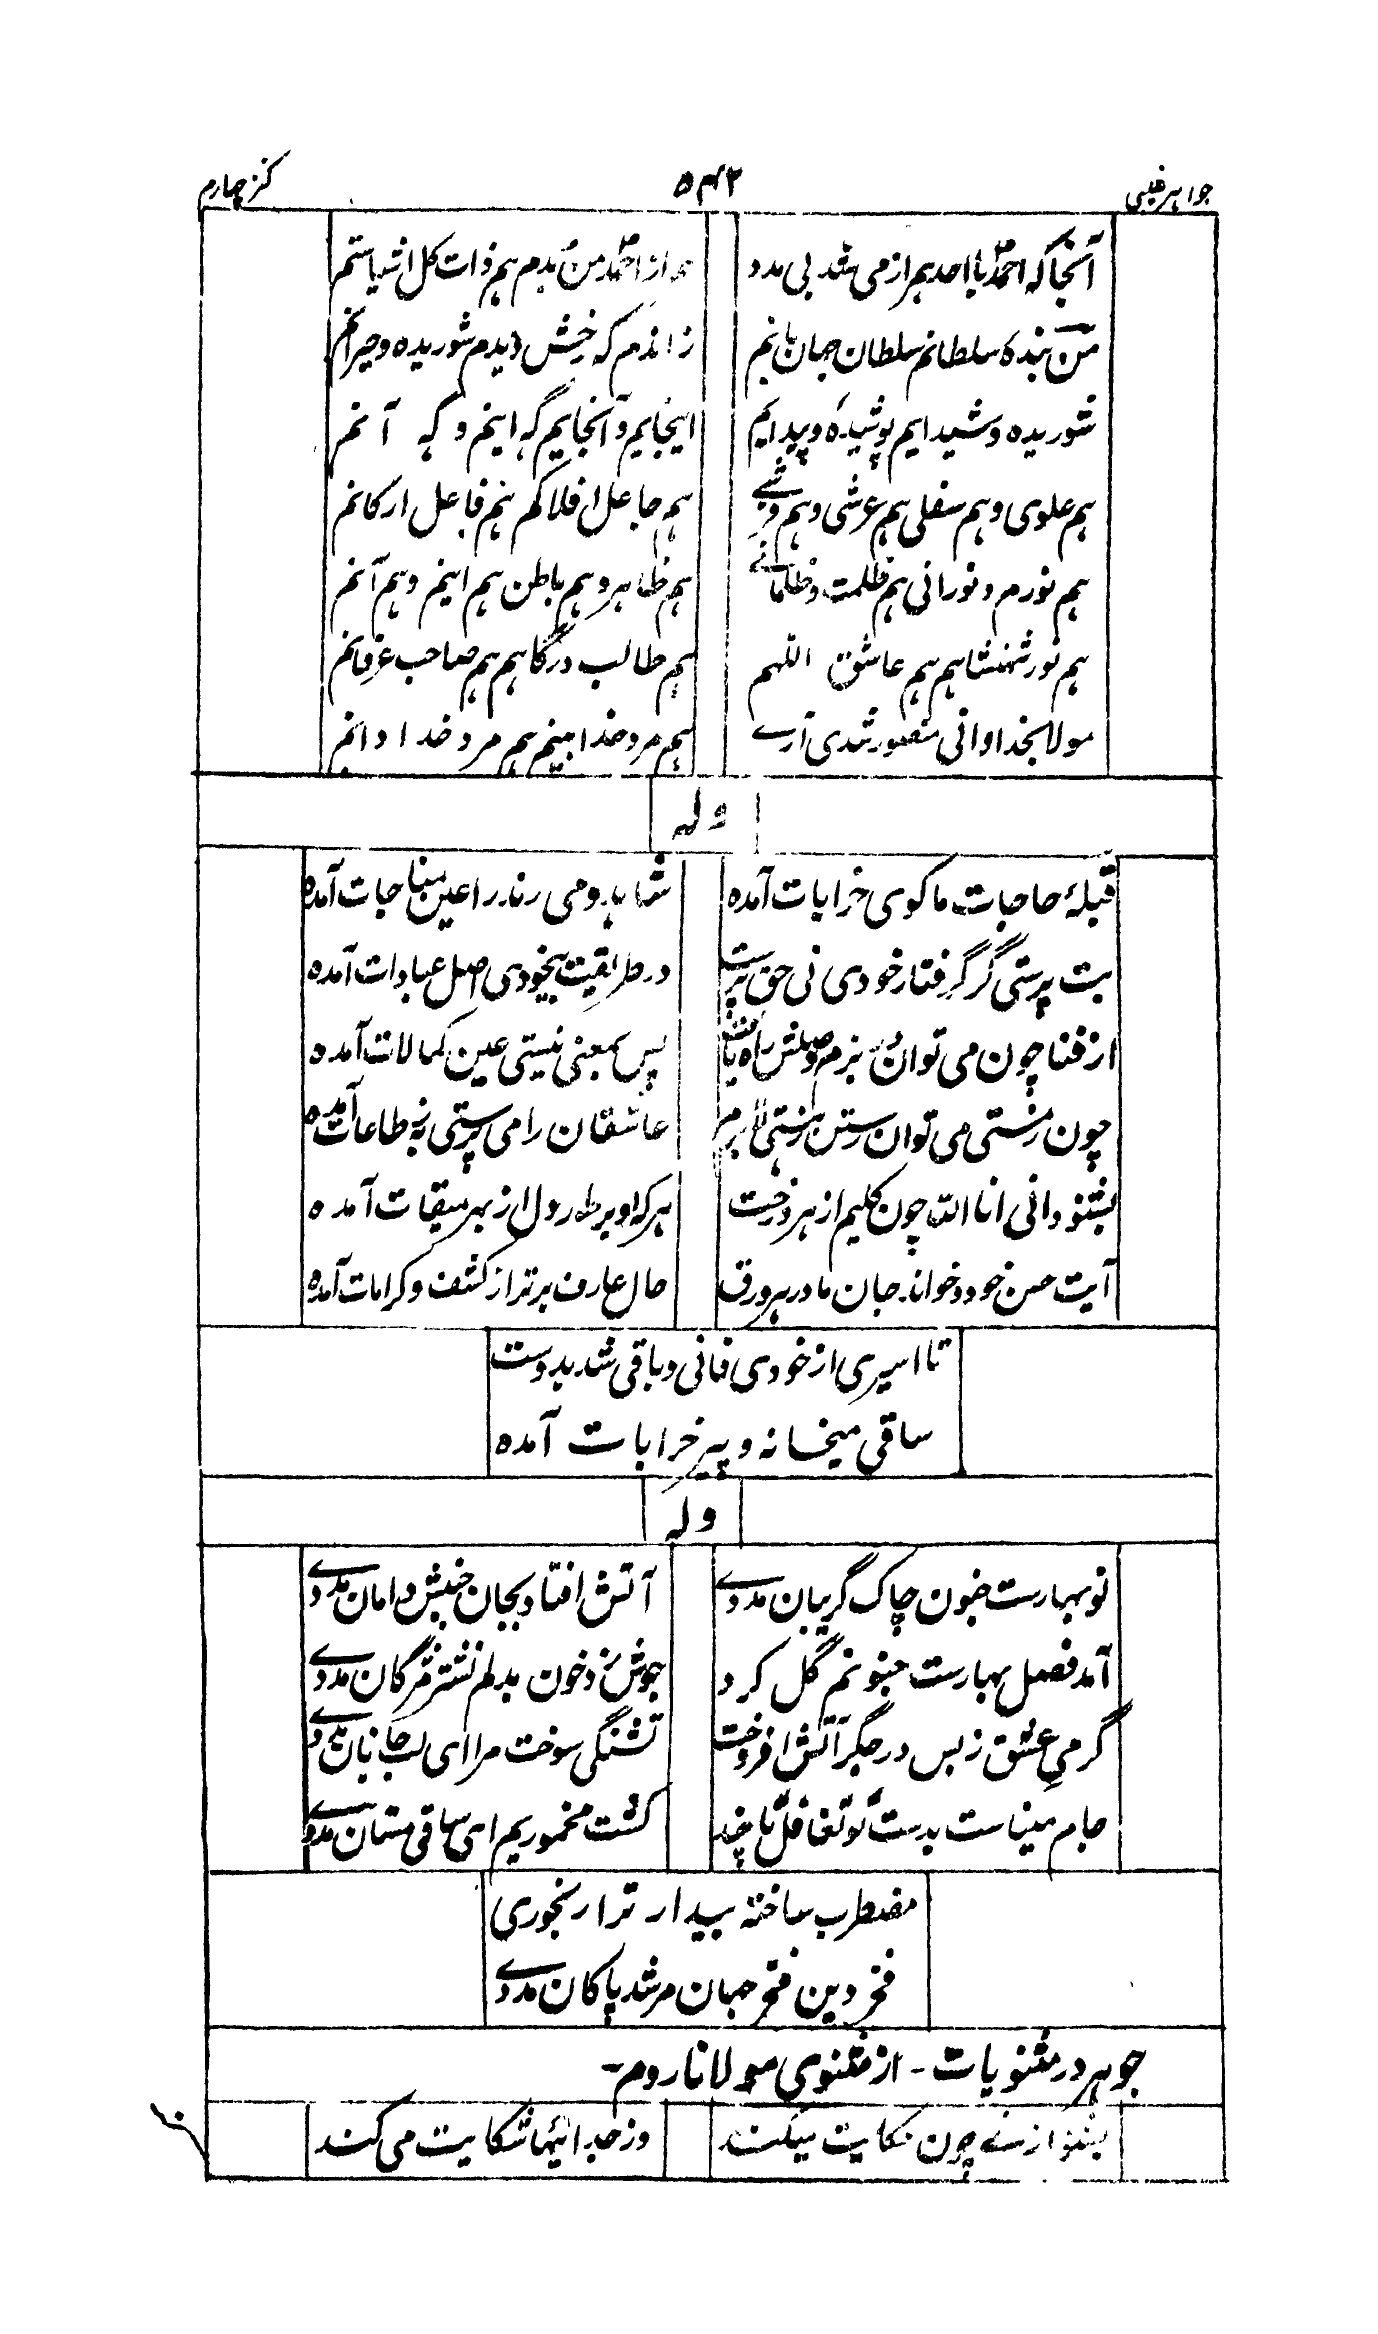 جواہر غیبی ۵۴۲ کنز چہارم
آنجا که احمد با احد ہمراز می شد بی مدد از احمد من بدم ہم ذات کل اشیاستم
من بندہ سلطانم سلطان جہان بانم زاندم کہ رخش دیدم شوریدہ و حیرانم
شوریدہ و شیدایم پوشیدہ و پیدایم اینجایم و آنجایم گہ اینم و گہ آنم
ہم علوی و ہم سفلی ہم عرشی و ہم فرشے ہم جاعل افلاکم ہم فاعل ارکانم
ہم نورم و نورانی ہم ظلمت و ظلمانے ہم ظاہر و ہم باطن ہم اینم و ہم آنم
ہم نور شہنشاہم ہم عاشق اللہم ہم طالب درگاہم ہم صاحب عرفانم
مولا بخدا وانی منصور شدی آرے ہم مرد خدا بینم ہم مرد خدا دانم
ولہ
قبلۂ حاجات ما کوی خرابات آمدہ شاہد و می رندرا عین مناجات آمدہ
بت پرستی گر گرفتار خودی نی حق پرست در طریقت بیخودی اصل عبادات آمدہ
از فنا چون می توان در بزم وصلش راہ یافت پس بمعنی نیستی عین کمالات آمدہ
چون ز مستی می توان رستن ز ہستی عاشقان را می پرستی بہ ز طاعات آمدہ
بشنو دانی انا اللہ چون کلیم از ہر درخت ہر کہ او بر طور دل از بہر میقات آمدہ
آیت حسن خود دخواند جان ما در ہر ورق حال عارف برتر از کشف و کرامات آمدہ
تا اسیری از خودی فانی و باقی شد بدوست
ساقی میخانہ و پیر خرابات آمدہ
ولہ
نو بہارست جنون چاک گریبان مددے آتش افتاد بجان جنبش دامان مددے
آمد فصل بہارست جنونم گل کرد جوش زد خون بدلم نشتر مژگان مددے
گرمی عشق ز بس در جگر آتش افروخت تشنگی سوخت مرا ای لب جانان مددے
جام میناست بدست تو تغافل تا چند کشت مخموریم ای ساقی مستان مددے
مضطرب ساختہ بیدار ترا رنجوری
فخر دین فخر جہان مرشد پاکان مددے
جوہر در مثنویات - از مثنوی مولانا روم -
بشنو از نے چون حکایت میکند وز جدائیہا شکایت می کند